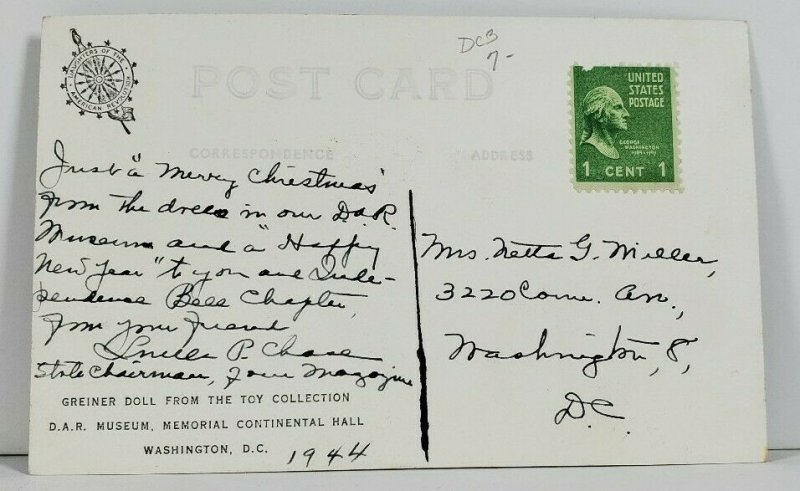 DC3
7-
DAUGHTERS OF THE AMERICAN REVOLUTION
POST CARD
UNITED
STATES
POSTAGE
GEORGE
WASHINGTON
1 CENT 1
CORRESPONDENCE
ADDRESS
Just "a Merry Christmas"
from the dolls in our D.A.R.
Museum and a "Happy
New Year" to you and Inde-
pendence Bell Chapter,
from your friend
Luella P. Chase
State Chairman, Magazine
Mrs. Netta G. Miller,
3220 Conn. Av.,
Washington, 8,
D.C.
GREINER DOLL FROM THE TOY COLLECTION
D.A.R. MUSEUM, MEMORIAL CONTINENTAL HALL
WASHINGTON, D.C.
1944